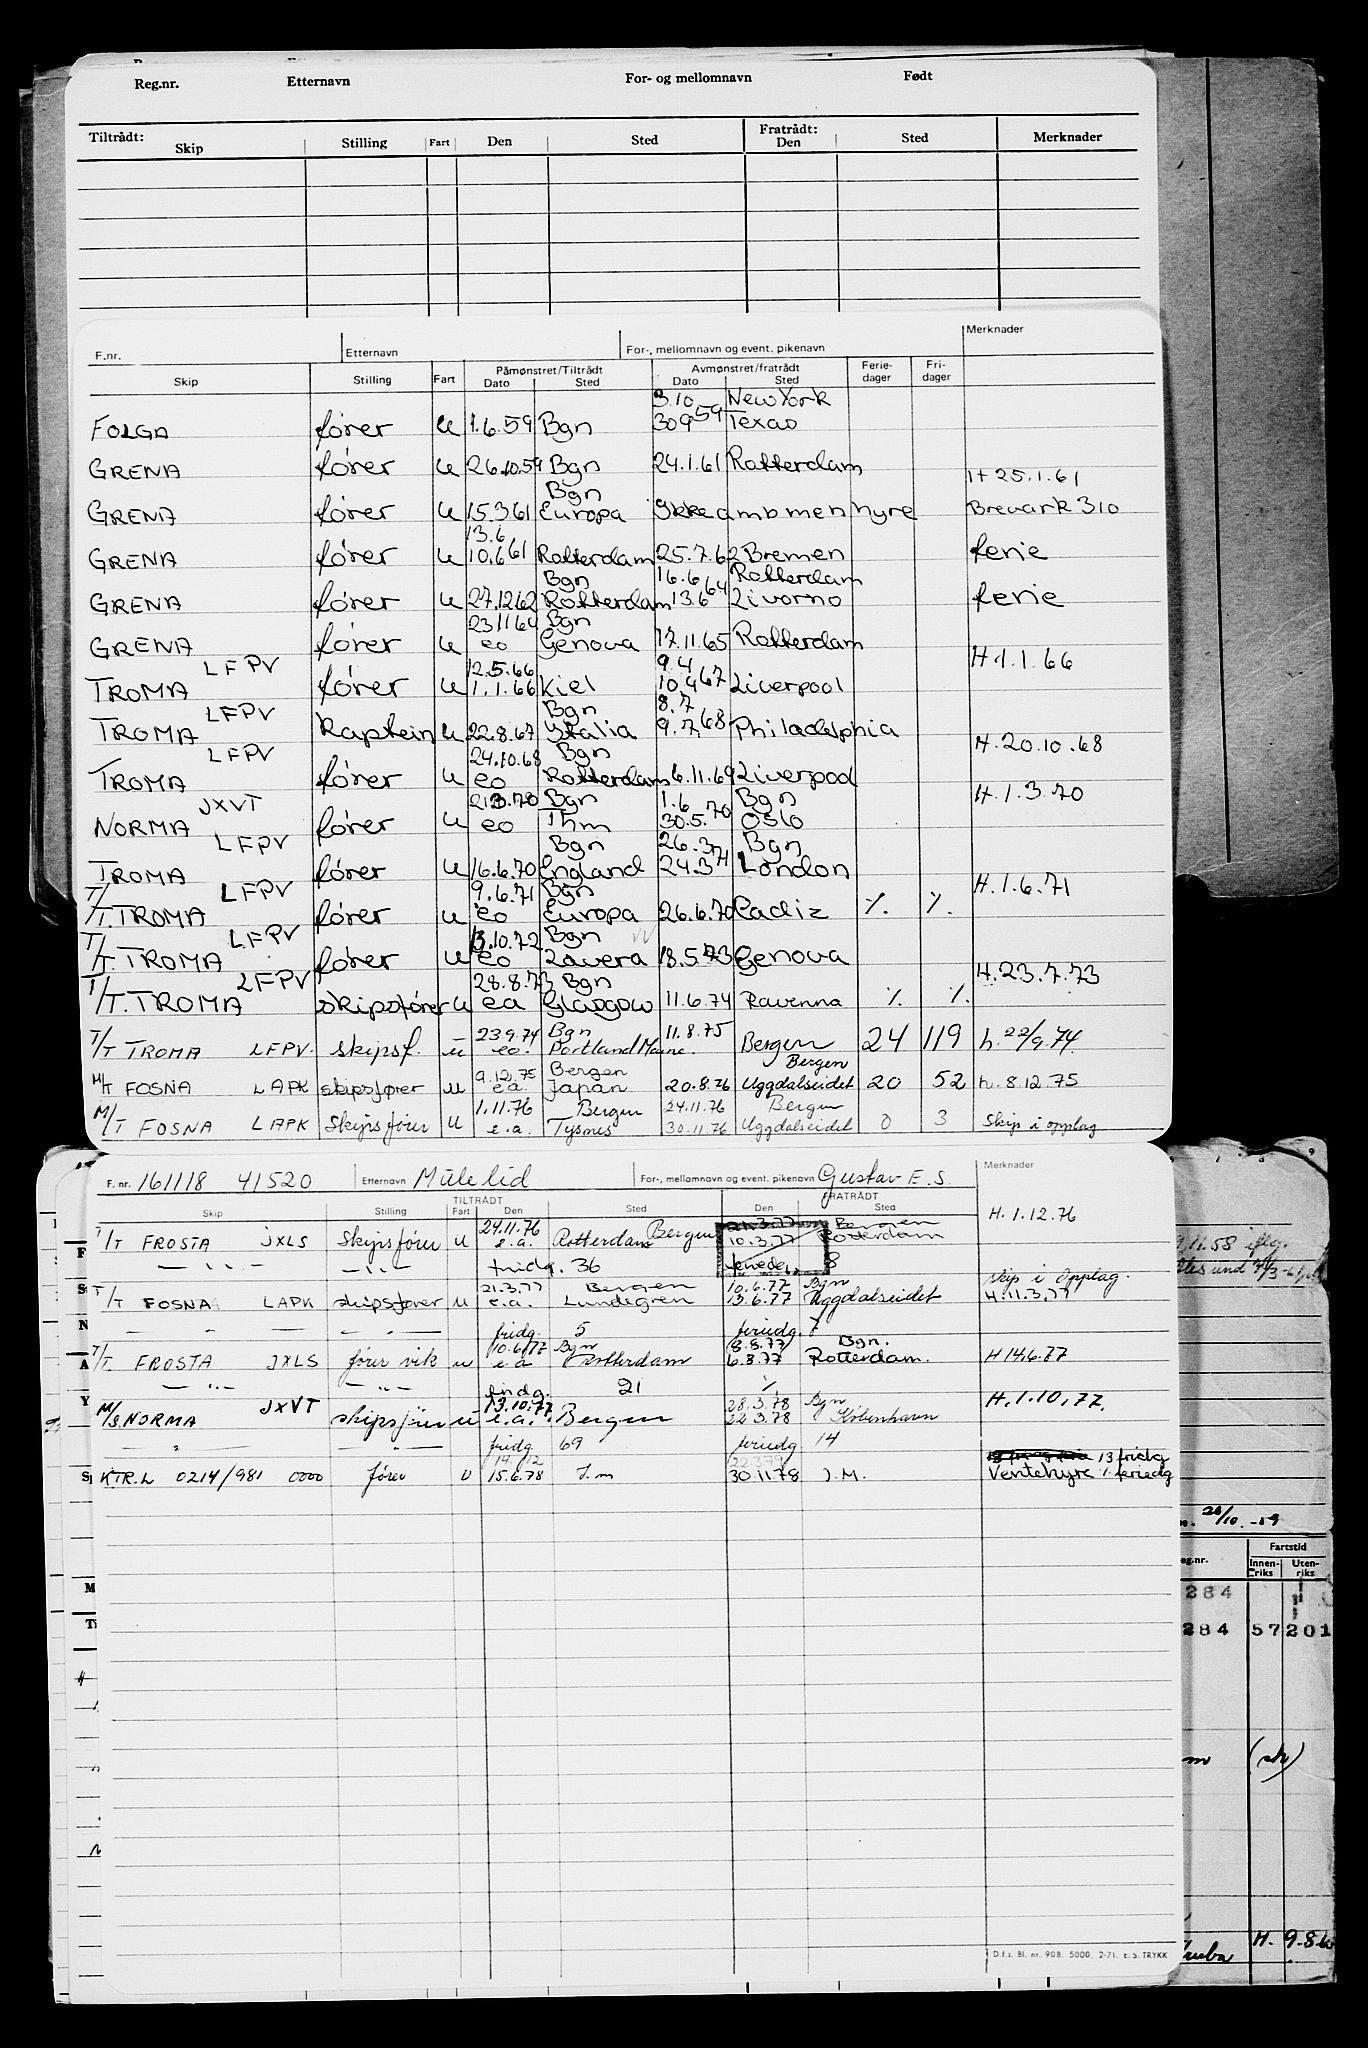 Reg.nr. Etternavn For- og mellomnavn Født
Tiltrådt: Fratrådt:
Skip Stilling Fart Den Sted Den Sted Merknader
F.nr. Etternavn For-, mellomnavn og event. pikenavn Merknader
Påmønstret/Tiltrådt Avmønstret/fratrådt Ferie- Fri-
Skip Stilling Fart Dato Sted Dato Sted dager dager
3.10 New York
FOLGA fører u 1.6.59 Bgn 30959 Texas
GRENA fører u 26.10.59 Bgn 24.1.61 Rotterdam H 25.1.61
Bgn
GRENA fører u 15.3.61 Europa Ikke ombmenhyre Brevark 310
13.6
GRENA fører u 10.6.61 Rotterdam 25.7.62 Bremen ferie
Bgn 16.6 Rotterdam
GRENA fører u 27.12.62 Rotterdam 13.6.64 Livorno ferie
23.11.64 Bgn
GRENA fører u eo Genova 17.11.65 Rotterdam
LFPV 12.5.66 9.4 H 1.1.66
TROMA fører u 1.1.66 Kiel 10.4.67 Liverpool
LFPV Bgn 8.7
TROMA Kaptein u 22.8.67 Italia 9.7.68 Philadelphia
LFPV 24.10.68 Bgn H.20.10.68
TROMA fører u eo Rotterdam 6.11.69 Liverpool
JXVT 21.3.70 Bgn 1.6 Bgn H.1.3.70
NORMA fører u eo Thm 30.5.70 Oslo
LFPV Bgn 26.3 Bgn
TROMA fører u 16.6.70 England 24.3.71 London
LFPV 9.6.71 Bgn H.1.6.71
T/T. TROMA fører u eo Europa 26.6.70 Cadiz % %
LFPV 13.10.72 Bgn
T/T. TROMA fører u eo Zavera 18.5.73 Genova
LFPV 28.8.73 Bgn H.23.7.73
T/T. TROMA skipsfører u ea Glasgow 11.6.74 Ravenna % %
23.9.74 Bgn 11.8.75
T/T TROMA LFPV. skipsf. u eo. Portland Maine. Bergen 24 119 h. 22/9.74.
9.12.75 Bergen Bergen
M/T FOSNA LAPK skipsfører u ea Japan 20.8.76 Uggdalseidet 20 52 h. 8.12.75
1.11.76 Bergen 24.11.76 Bergen
M/T FOSNA LAPK Skipsfører u e.a. Tysnes 30.11.76 Uggdalseidet 0 3 Skip i opplag
F. nr. 161118 41520 Etternavn Mülelid For-, mellomnavn og event. pikenavn Gustav E.S. Merknader
TILTRÅDT FRATRÅDT
Skip Stilling Fart Den Sted Den Sted
24.11.76 Bergen 21.3.77 Bergen H.1.12.76
T/T FROSTA JXLS Skipsfører u e.a. Rotterdam 10.3.77 Rotterdam
— " — — " — fridg. 36 feriedg. 8
21.3.77 Bergen 10.6.77 Bgn skip i opplag.
T/T FOSNA LAPK skipsfører u e.a. Lundegren 13.6.77 Uggdalseidet H.11.3.77
" — " — fridg. 5 feriedg. 7
10.6.77 Bgn 8.8.77 Bgn.
T/T FROSTA JXLS fører vik u e.a Rotterdam 6.8.77 Rotterdam. H 14.6.77
— " — — " — fridg. 21 %
13.10.77 28.3.78 Bgn H.1.10.77.
M/S NORMA JXVT skipsfører u e.a. Bergen 22.3.78 København
— " — — " — fridg 69 feriedg 14
14.12 22379 13 fridg
KTR.L 0214/981 0000 fører U 15.6.78 I.m 30.11.78 I.M. Ventehyre % feriedg
D.f.s. Bl. nr. 908. 5000, 2-71. E.S. TRYKK
11.58 iflg.
n. 20/10.-59
eg.nr. Fartstid
Innen-riks Uten-riks
284
284 57201
m (sk)
H. 9.8.6